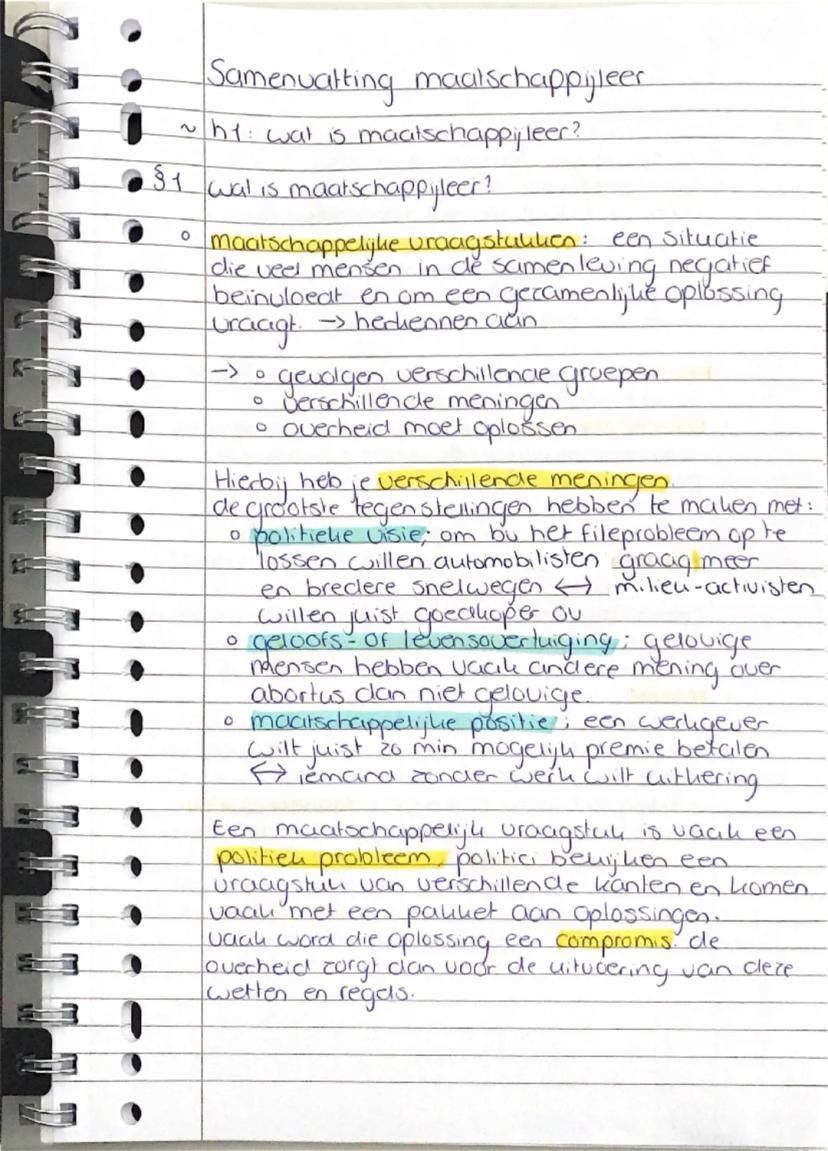 Samenvatting maatschappijleer
~ h1: wat is maatschappijleer?
§1 wat is maatschappijleer?
o maatschappelijke vraagstukken: een situatie
die veel mensen in de samenleving negatief
beïnvloedt en om een gezamenlijke oplossing
vraagt. → herkennen aan
→ o gevolgen verschillende groepen
o verschillende meningen
o overheid moet oplossen
Hierbij heb je verschillende meningen.
de grootste tegenstellingen hebben te maken met:
o politieke visie; om bij het fileprobleem op te
lossen willen automobilisten graag meer
en bredere snelwegen ↔ milieu-activisten
willen juist goedkoper ov
o geloofs- of levensovertuiging; gelovige
mensen hebben vaak andere mening over
abortus dan niet gelovige.
o maatschappelijke positie; een werkgever
wilt juist zo min mogelijk premie betalen
↔ iemand zonder werk wilt uitkering
Een maatschappelijk vraagstuk is vaak een
politiek probleem, politici bekijken een
vraagstuk van verschillende kanten en komen
vaak met een pakket aan oplossingen.
vaak word die oplossing een compromis. de
overheid zorgt dan voor de uitvoering van deze
wetten en regels.